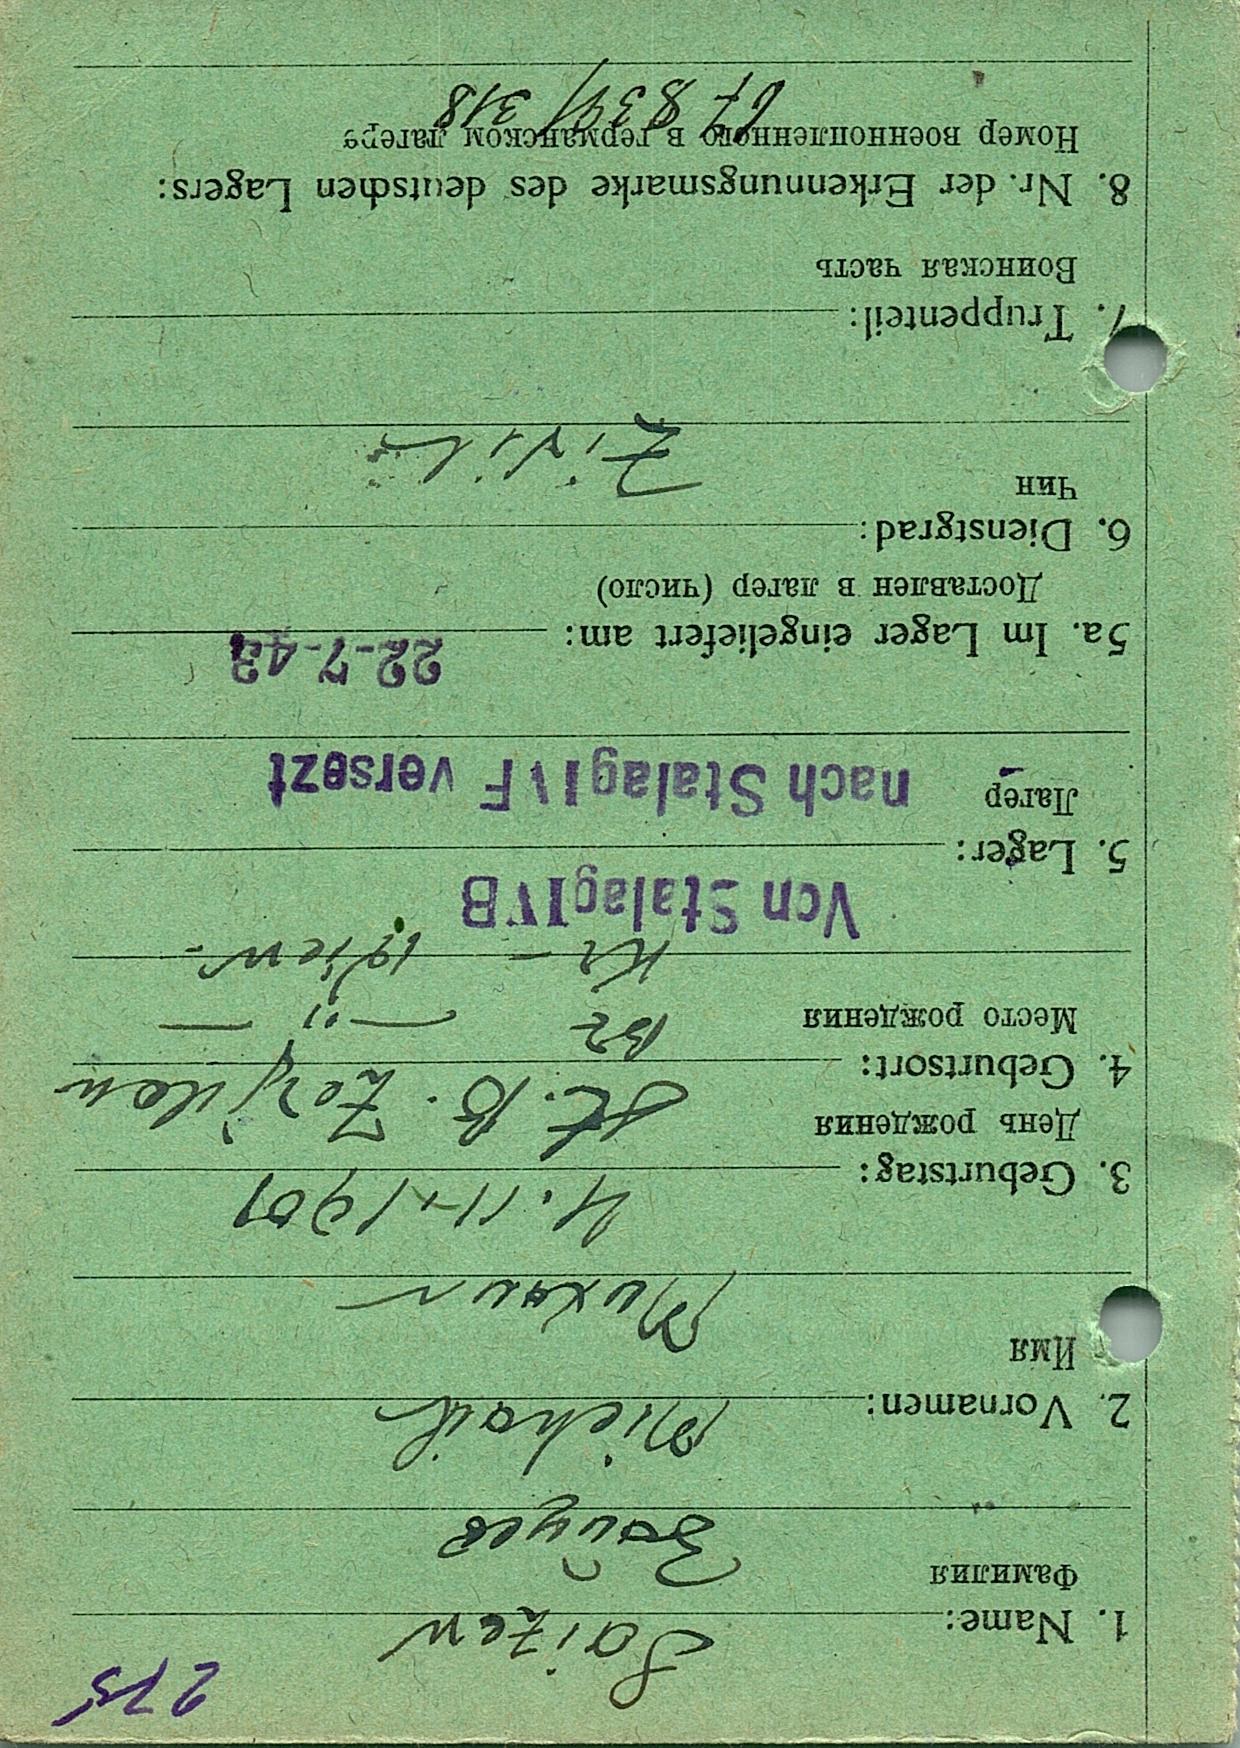 275
1. Name: Saizew
Фамилия Зайцев
2. Vornamen: Michail
Имя Михаил
3. Geburtstag: 4. 11. 1901
День рождения
4. Geburtsort:
Место рождения
Kr — Kiew
Von Stalag IV B
5. Lager:
Лагер nach Stalag IV F versezt
22-7-43
5a. Im Lager eingeliefert am:
Доставлен в лагер (число)
6. Dienstgrad:
Чин Zivil
7. Truppenteil:
Воинская часть
8. Nr. der Erkennungsmarke des deutschen Lagers:
Номер военнопленного в германском лагере
/ 318